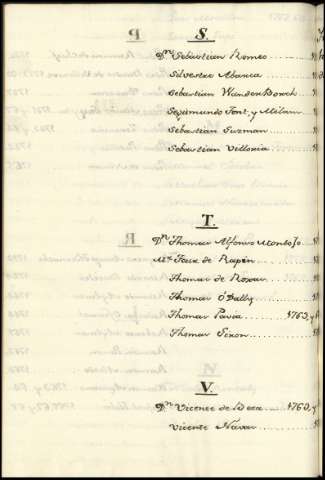 S.
Dn Sebastian Romeo
Silvestre Abarca
Sebastian WandenBorch
Segismundo Font, y Milans
Sebastian Guzman
Sebastian Villoria
T.
Dn Thomas Alfonso Montoso
Mr. de Rapin
Thomas de Roxas
Thomas O'Dally
Thomas Pavia 1763, y
Thomas Sexon
V.
Dn Vicente de 1760, y
Vicente Navas